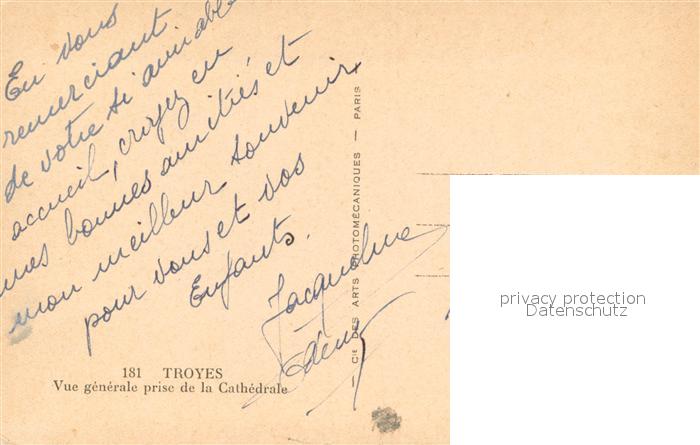 En vous
remerciant
de votre si aimable
accueil, croyez en
mes bonnes amitiés et
mon meilleur souvenir
pour vous et vos
Enfants.
Jacqueline
181 TROYES
Vue générale prise de la Cathédrale
— Cie DES ARTS PHOTOMÉCANIQUES — PARIS
privacy protection
Datenschutz